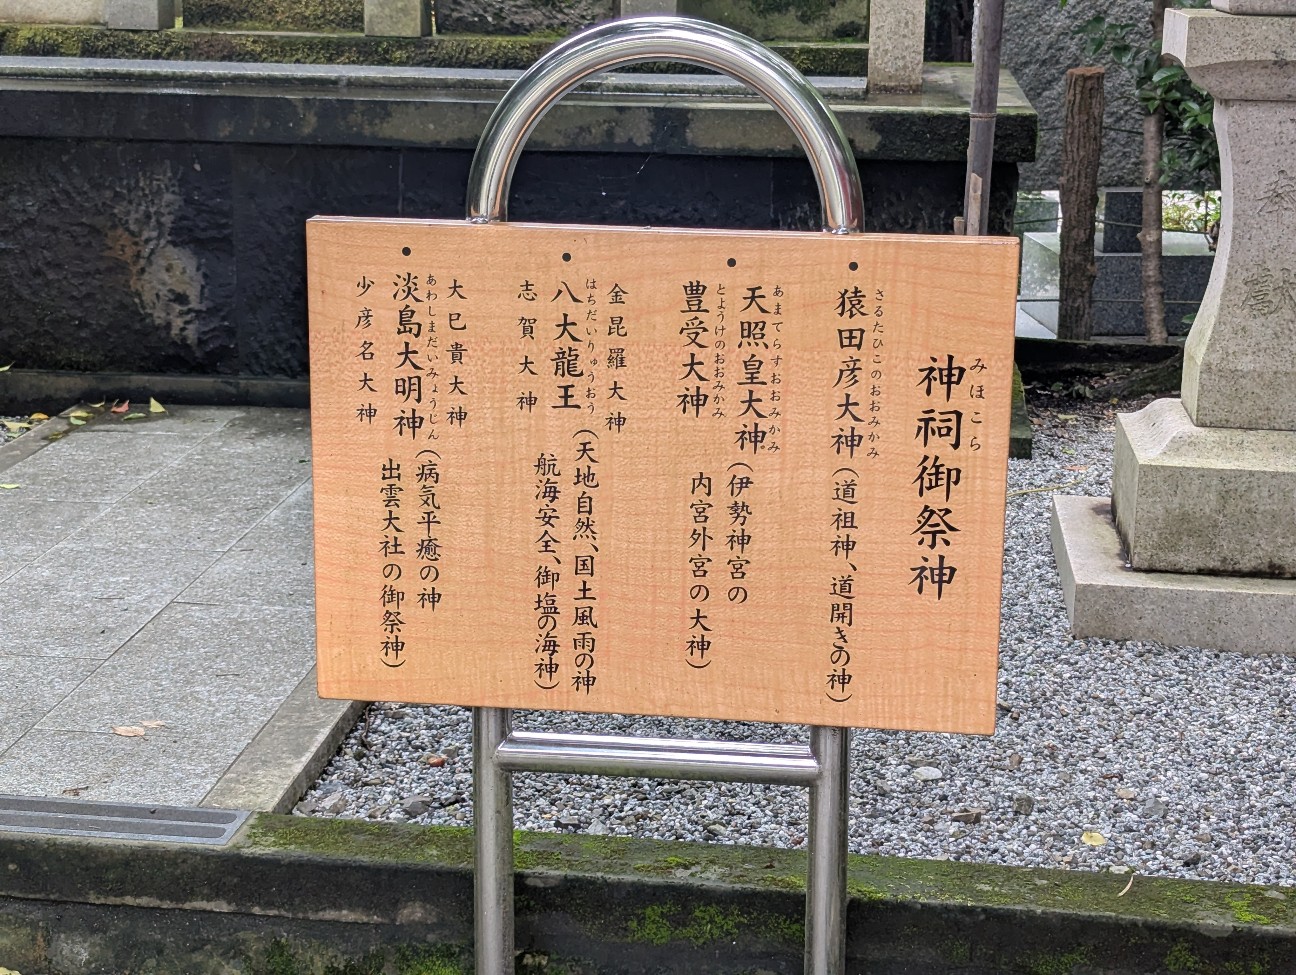 神祠御祭神
みほこら
●猿田彦大神(道祖神、道開きの神)
さるたひこのおおみかみ
●天照皇大神(伊勢神宮の
あまてらすおおみかみ
豊受大神 内宮外宮の大神)
とようけのおおみかみ
金昆羅大神
●八大龍王(天地自然、国土風雨の神
はちだいりゅうおう
志賀大神 航海安全、御塩の海神)
大巳貴大神
●淡島大明神(病気平癒の神
あわしまだいみょうじん
少彦名大神 出雲大社の御祭神)
奉